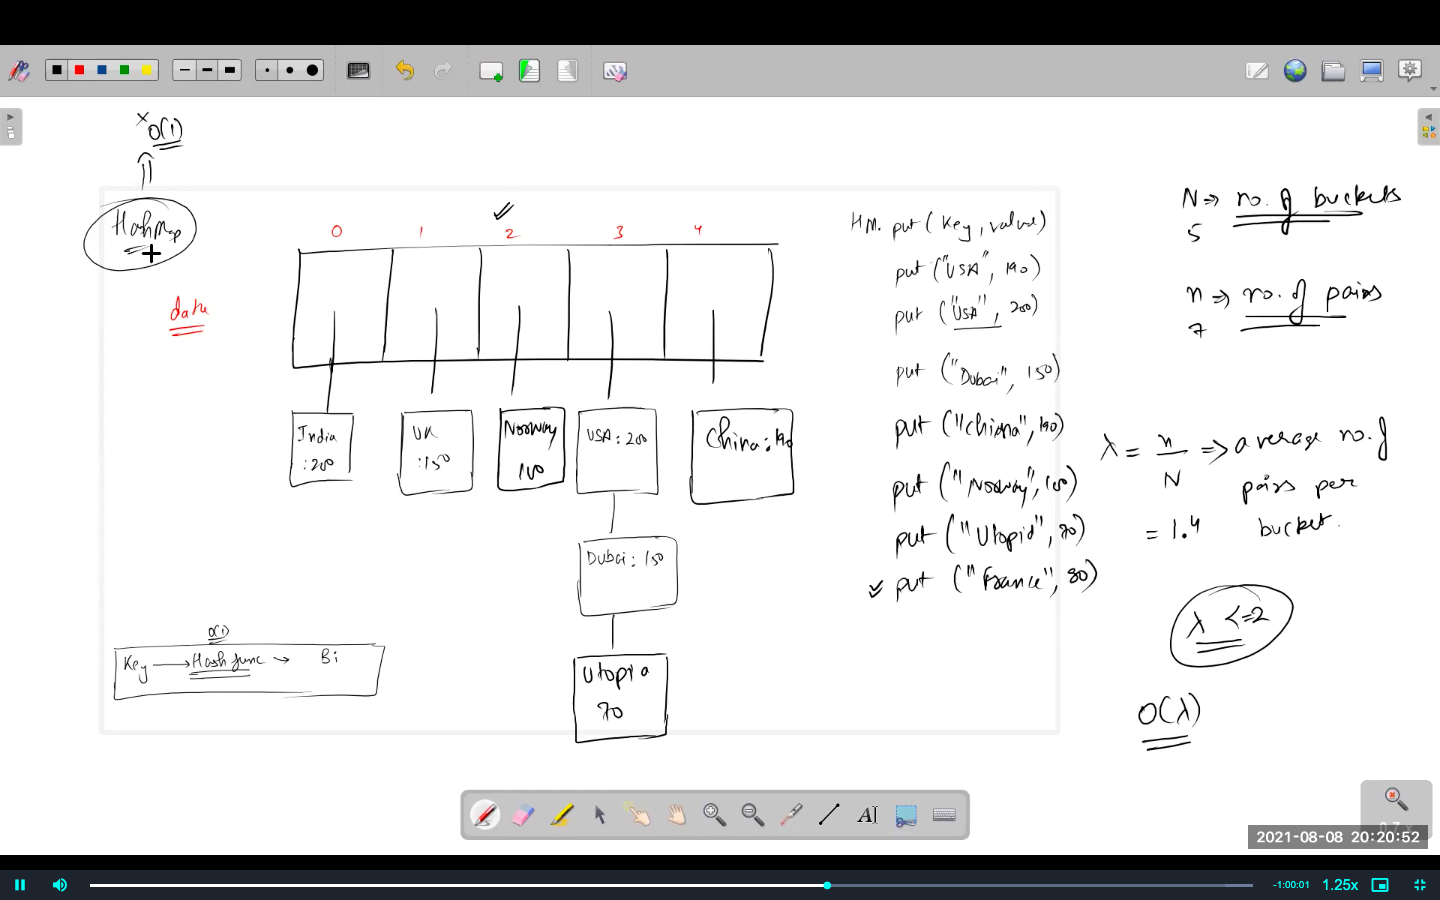 O(1)
HashMap
data
0 1 2 3 4
India
:200
UK
:150
Norway
100
USA: 200
Dubai: 150
Utopia
70
China:190
O(1)
Key → Hash func → Bi
HM. put (Key, value)
put ("USA", 190)
put ("USA", 200)
put ("Dubai", 150)
put ("China", 190)
put ("Norway", 100)
put ("Utopia", 70)
put ("France", 80)
N => no. of buckets
5
n => no. of pairs
7
λ = n/N => average no. of
pairs per
bucket.
= 1.4
λ <=2
O(λ)
2021-08-08 20:20:52
-1:00:01 1.25x